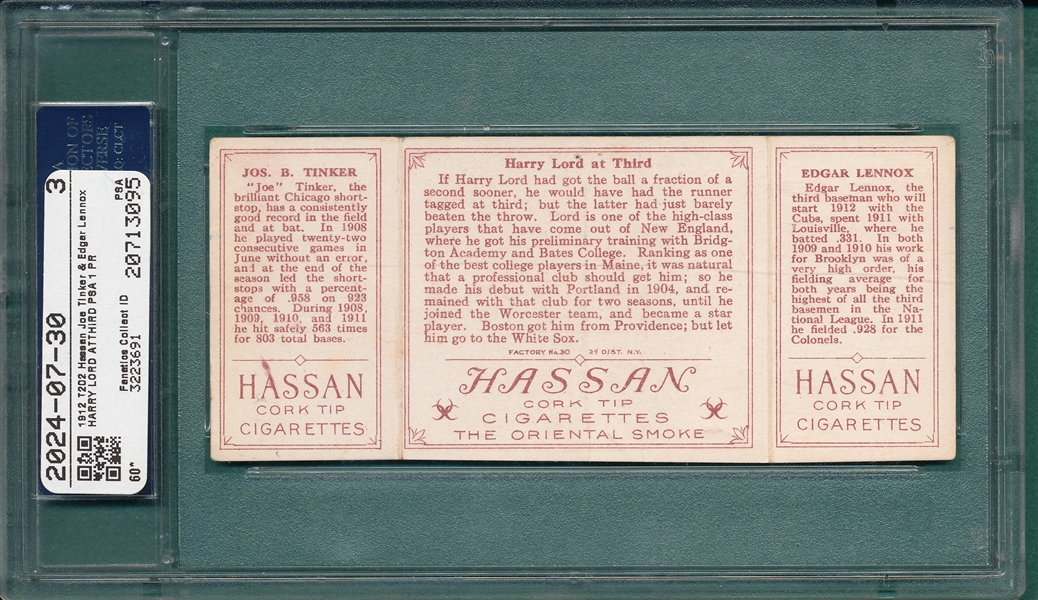 ION OF
ECTORS
VERSE
Q: CLCT
2024-07-30 3
1912 T202 Hassan Joe Tinker & Edgar Lennox
HARRY LORD ATTHIRD PSA 1 PR
PSA
20713095
Fanatics Collect ID
3223691
60*
JOS. B. TINKER
"Joe" Tinker, the
brilliant Chicago short-
stop, has a consistently
good record in the field
and at bat. In 1908
he played twenty-two
consecutive games in
June without an error,
and at the end of the
season led the short-
stops with a percent-
age of .958 on 923
chances. During 1908,
1909, 1910, and 1911
he hit safely 563 times
for 803 total bases.
HASSAN
CORK TIP
CIGARETTES
Harry Lord at Third
If Harry Lord had got the ball a fraction of a
second sooner, he would have had the runner
tagged at third; but the latter had just barely
beaten the throw. Lord is one of the high-class
players that have come out of New England,
where he got his preliminary training with Bridg-
ton Academy and Bates College. Ranking as one
of the best college players in Maine, it was natural
that a professional club should get him; so he
made his debut with Portland in 1904, and re-
mained with that club for two seasons, until he
joined the Worcester team, and became a star
player. Boston got him from Providence; but let
him go to the White Sox.
FACTORY No. 30 2d DIST. N.Y.
HASSAN
CORK TIP
CIGARETTES
THE ORIENTAL SMOKE
EDGAR LENNOX
Edgar Lennox, the
third baseman who will
start 1912 with the
Cubs, spent 1911 with
Louisville, where he
batted .331. In both
1909 and 1910 his work
for Brooklyn was of a
very high order, his
fielding average for
both years being the
highest of all the third
basemen in the Na-
tional League. In 1911
he fielded .928 for the
Colonels.
HASSAN
CORK TIP
CIGARETTES